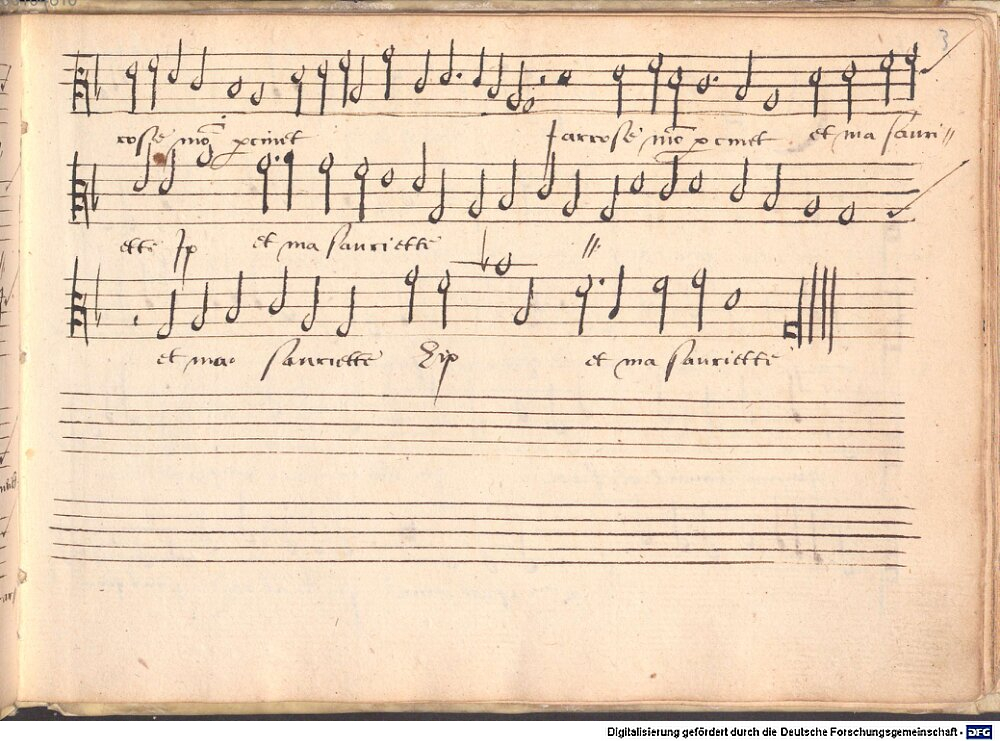 3
rose mō pcinet Jarrose mō pcinet et ma sauri//
ette Jp et ma sauriette //
et ma sauriette et ma sauriette
Digitalisierung gefördert durch die Deutsche Forschungsgemeinschaft - DFG